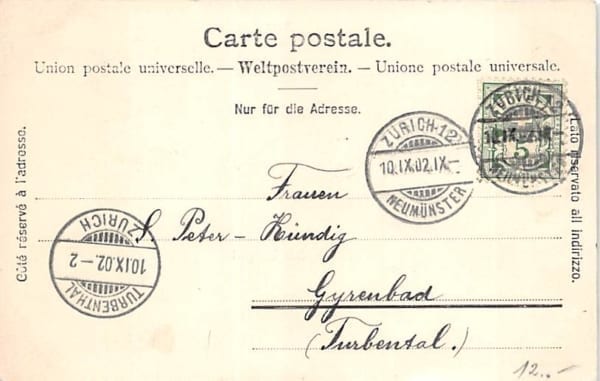 Carte postale.
Union postale universelle. — Weltpostverein. — Unione postale universale.
Nur für die Adresse.
Côté réservé à l'adresse.
Lato riservato all indirizzo.
ZÜRICH-12
10.IX.02.IX-
NEUMÜNSTER
ZÜRICH-12
10.IX.02.IX-
NEUMÜNSTER
5
Frauen
S. Peter - Hündig
Gyrenbad
(Turbental.)
TURBENTHAL
10.IX.02.-2
ZÜRICH
12.-